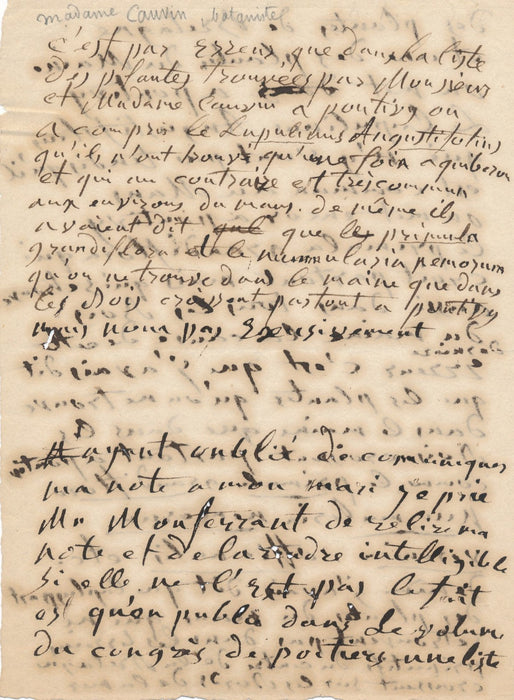 madame Cauvin botaniste
C'est par Erreur que dans la liste
des plantes trouvées par Monsieur
et Madame Cauvin a pontivy on
a compris le Lupulinus Angustifolius
qu'ils n'ont trouvé qu'une fois a quiberon
et qui au contraire est très commun
aux environs du mans. De même ils
avaient dit que le primula
grandiflora et le nummularia nemorum
qu'on ne trouve dans le maine que dans
les Bois croissent partout a pontivy
mais non pas Exclusivement
Ayant oublié de communiquer
ma note a mon mari je prie
Mr Monferrant de relire ma
note et de la rendre intelligible
si elle ne l'est pas le fait
est qu'on publia dans le volume
du congrès de poitiers une liste